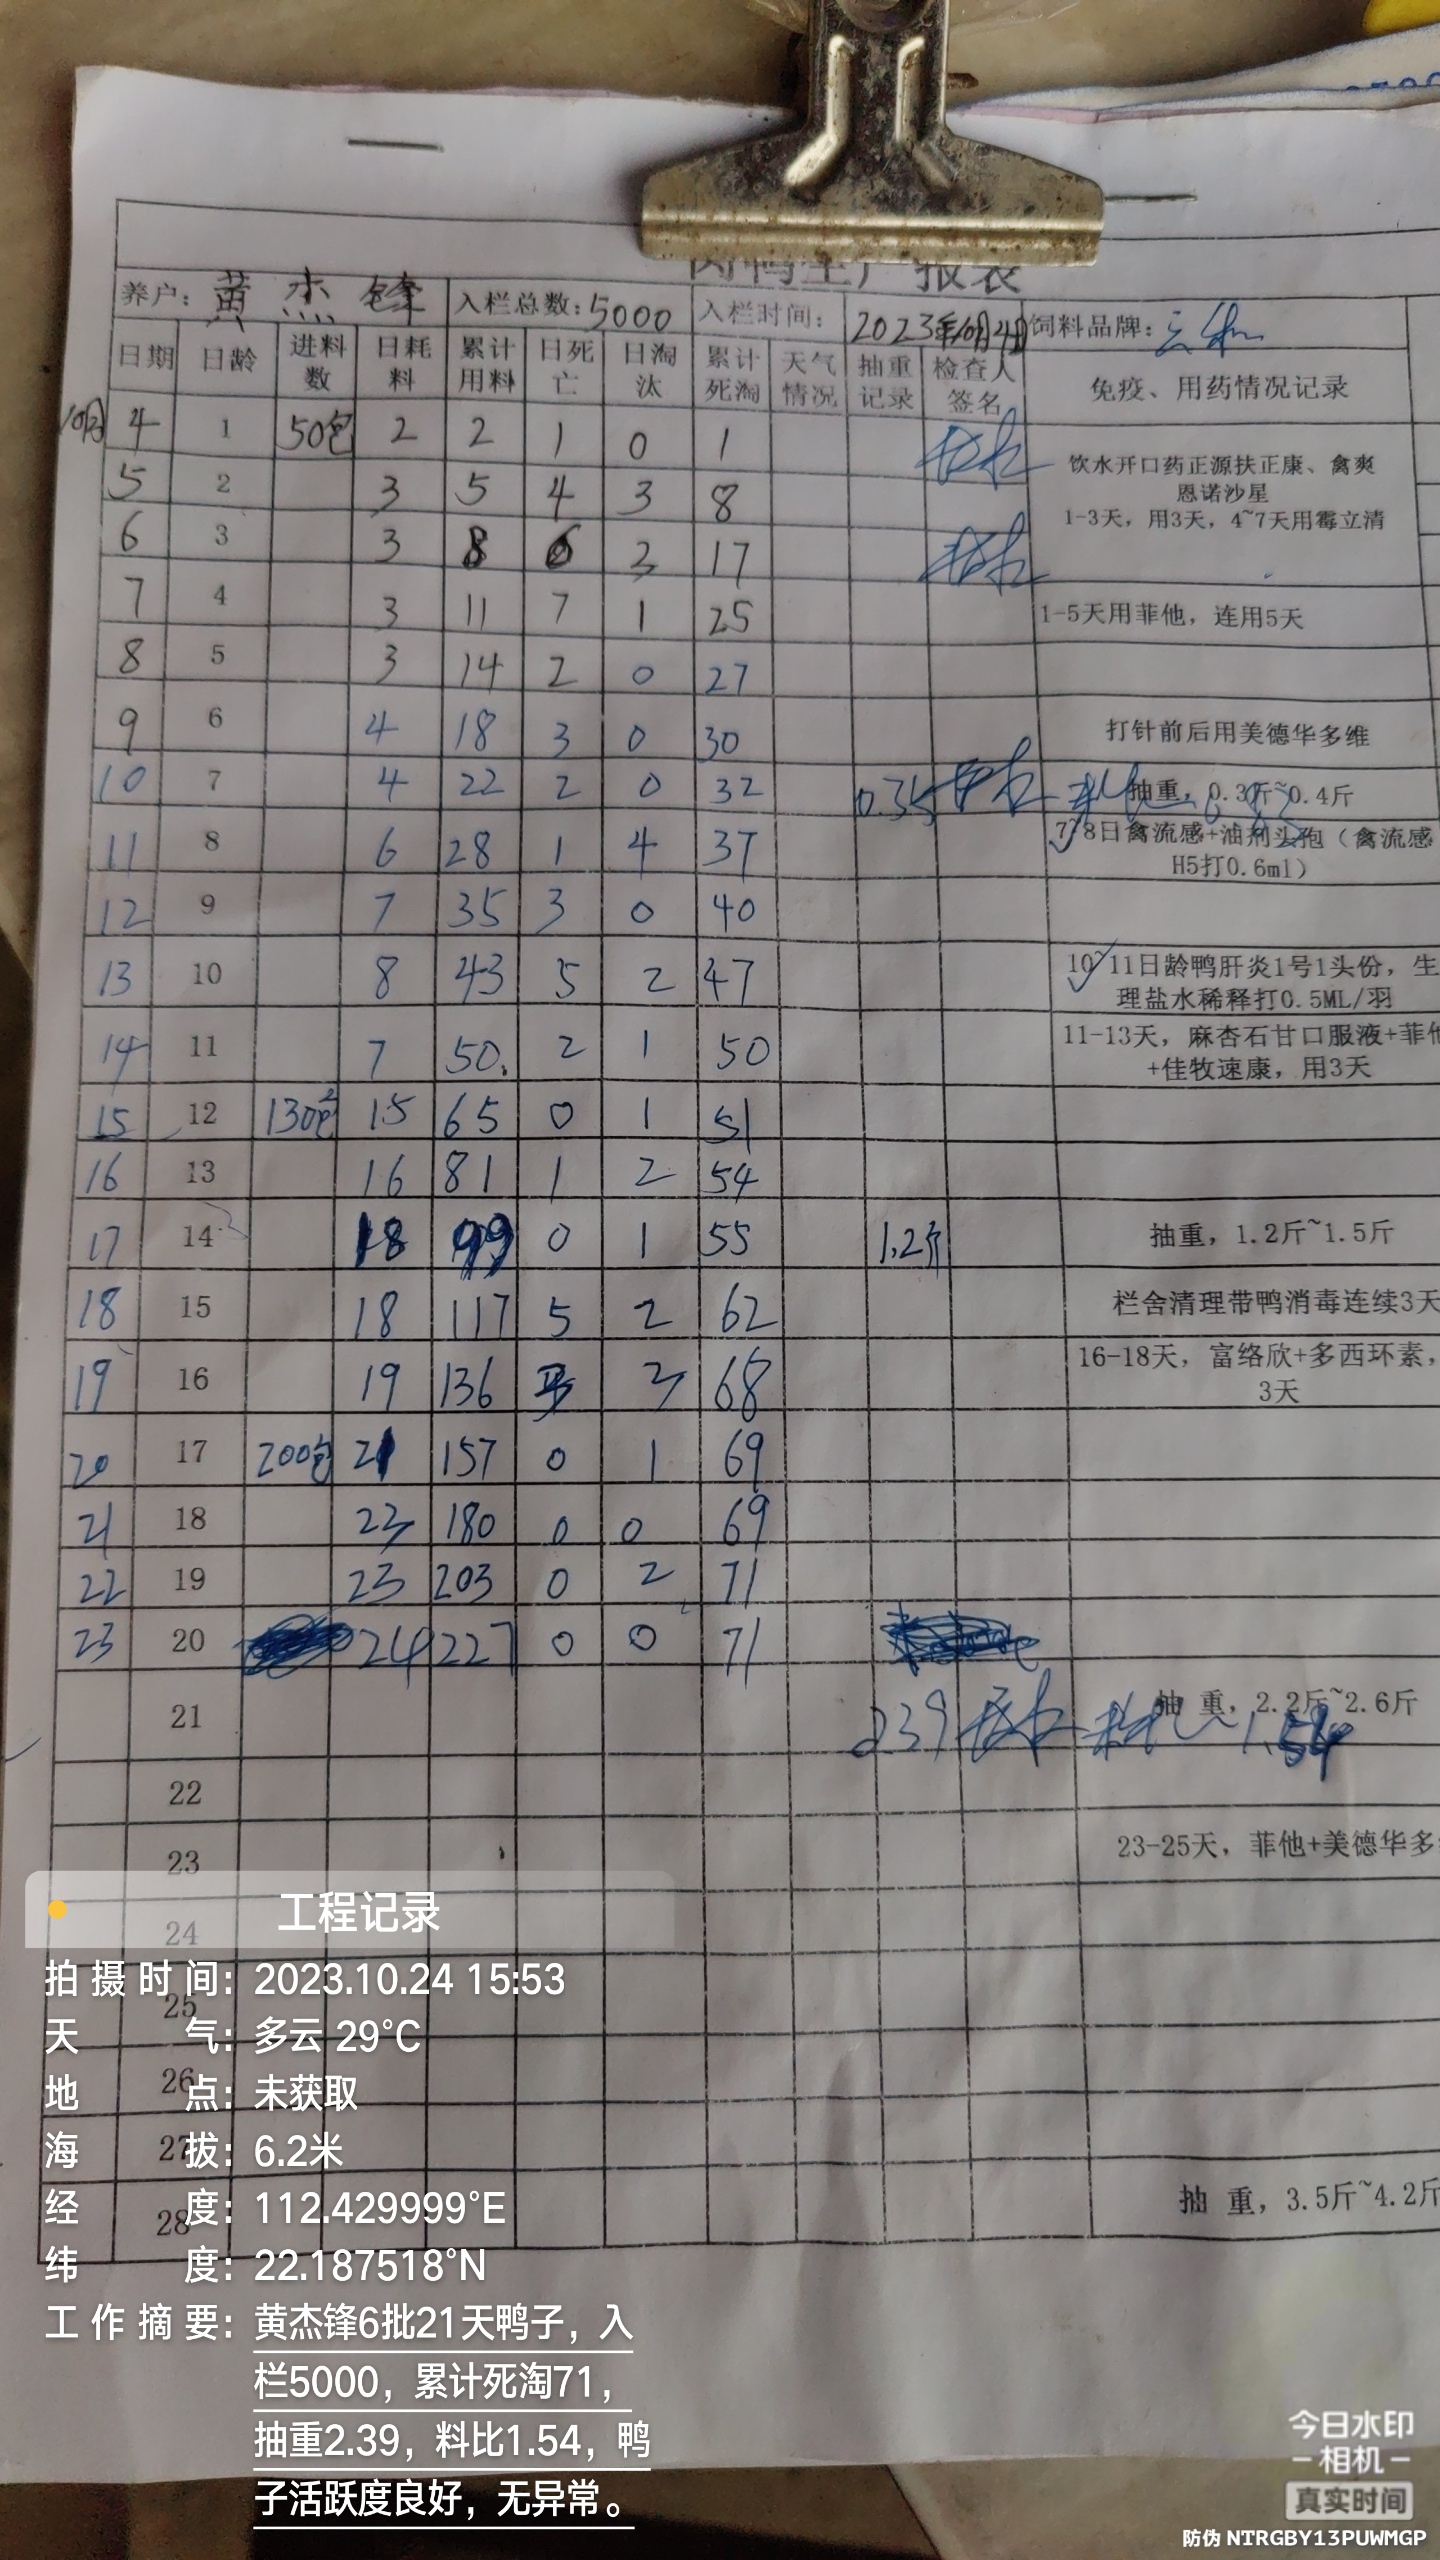 肉鸭生产报表
养户：黄杰锋 入栏总数：5000 入栏时间：2023年10月4日 饲料品牌：
日期 日龄 进料数 日耗料 累计用料 日死亡 日淘汰 累计死淘 天气情况 抽重记录 检查人签名 免疫、用药情况记录
10月 4 1 50包 2 2 1 0 1
饮水开口药正源扶正康、禽爽
恩诺沙星
1-3天，用3天，4~7天用霉立清
5 2 3 5 4 3 8
6 3 3 8 6 3 17
7 4 3 11 7 1 25 1-5天用菲他，连用5天
8 5 3 14 2 0 27
9 6 4 18 3 0 30 打针前后用美德华多维
10 7 4 22 2 0 32 0.35 抽重，0.3斤~0.4斤
11 8 6 28 1 4 37 7~8日禽流感+油剂头孢（禽流感
H5打0.6ml）
12 9 7 35 3 0 40
13 10 8 43 5 2 47 10~11日龄鸭肝炎1号1头份，生
理盐水稀释打0.5ML/羽
14 11 7 50. 2 1 50 11-13天，麻杏石甘口服液+菲他
+佳牧速康，用3天
15 12 130包 15 65 0 1 51
16 13 16 81 1 2 54
17 14 18 99 0 1 55 1.2斤 抽重，1.2斤~1.5斤
18 15 18 117 5 2 62 栏舍清理带鸭消毒连续3天
19 16 19 136 3 3 68 16-18天，富络欣+多西环素，
3天
20 17 200包 21 157 0 1 69
21 18 23 180 0 0 69
22 19 23 203 0 2 71
23 20 24 227 0 0 71
21 2.39 抽 重，2.2斤~2.6斤
料比 1.54
22
23 23-25天，菲他+美德华多
24
25
26
27
28 抽 重，3.5斤~4.2斤
工程记录
拍摄时间：2023.10.24 15:53
天气：多云 29°C
地点：未获取
海拔：6.2米
经度：112.429999°E
纬度：22.187518°N
工作摘要：黄杰锋6批21天鸭子，入
栏5000，累计死淘71，
抽重2.39，料比1.54，鸭
子活跃度良好，无异常。
今日水印
-相机-
真实时间
防伪 NTRGBY13PUWMGP